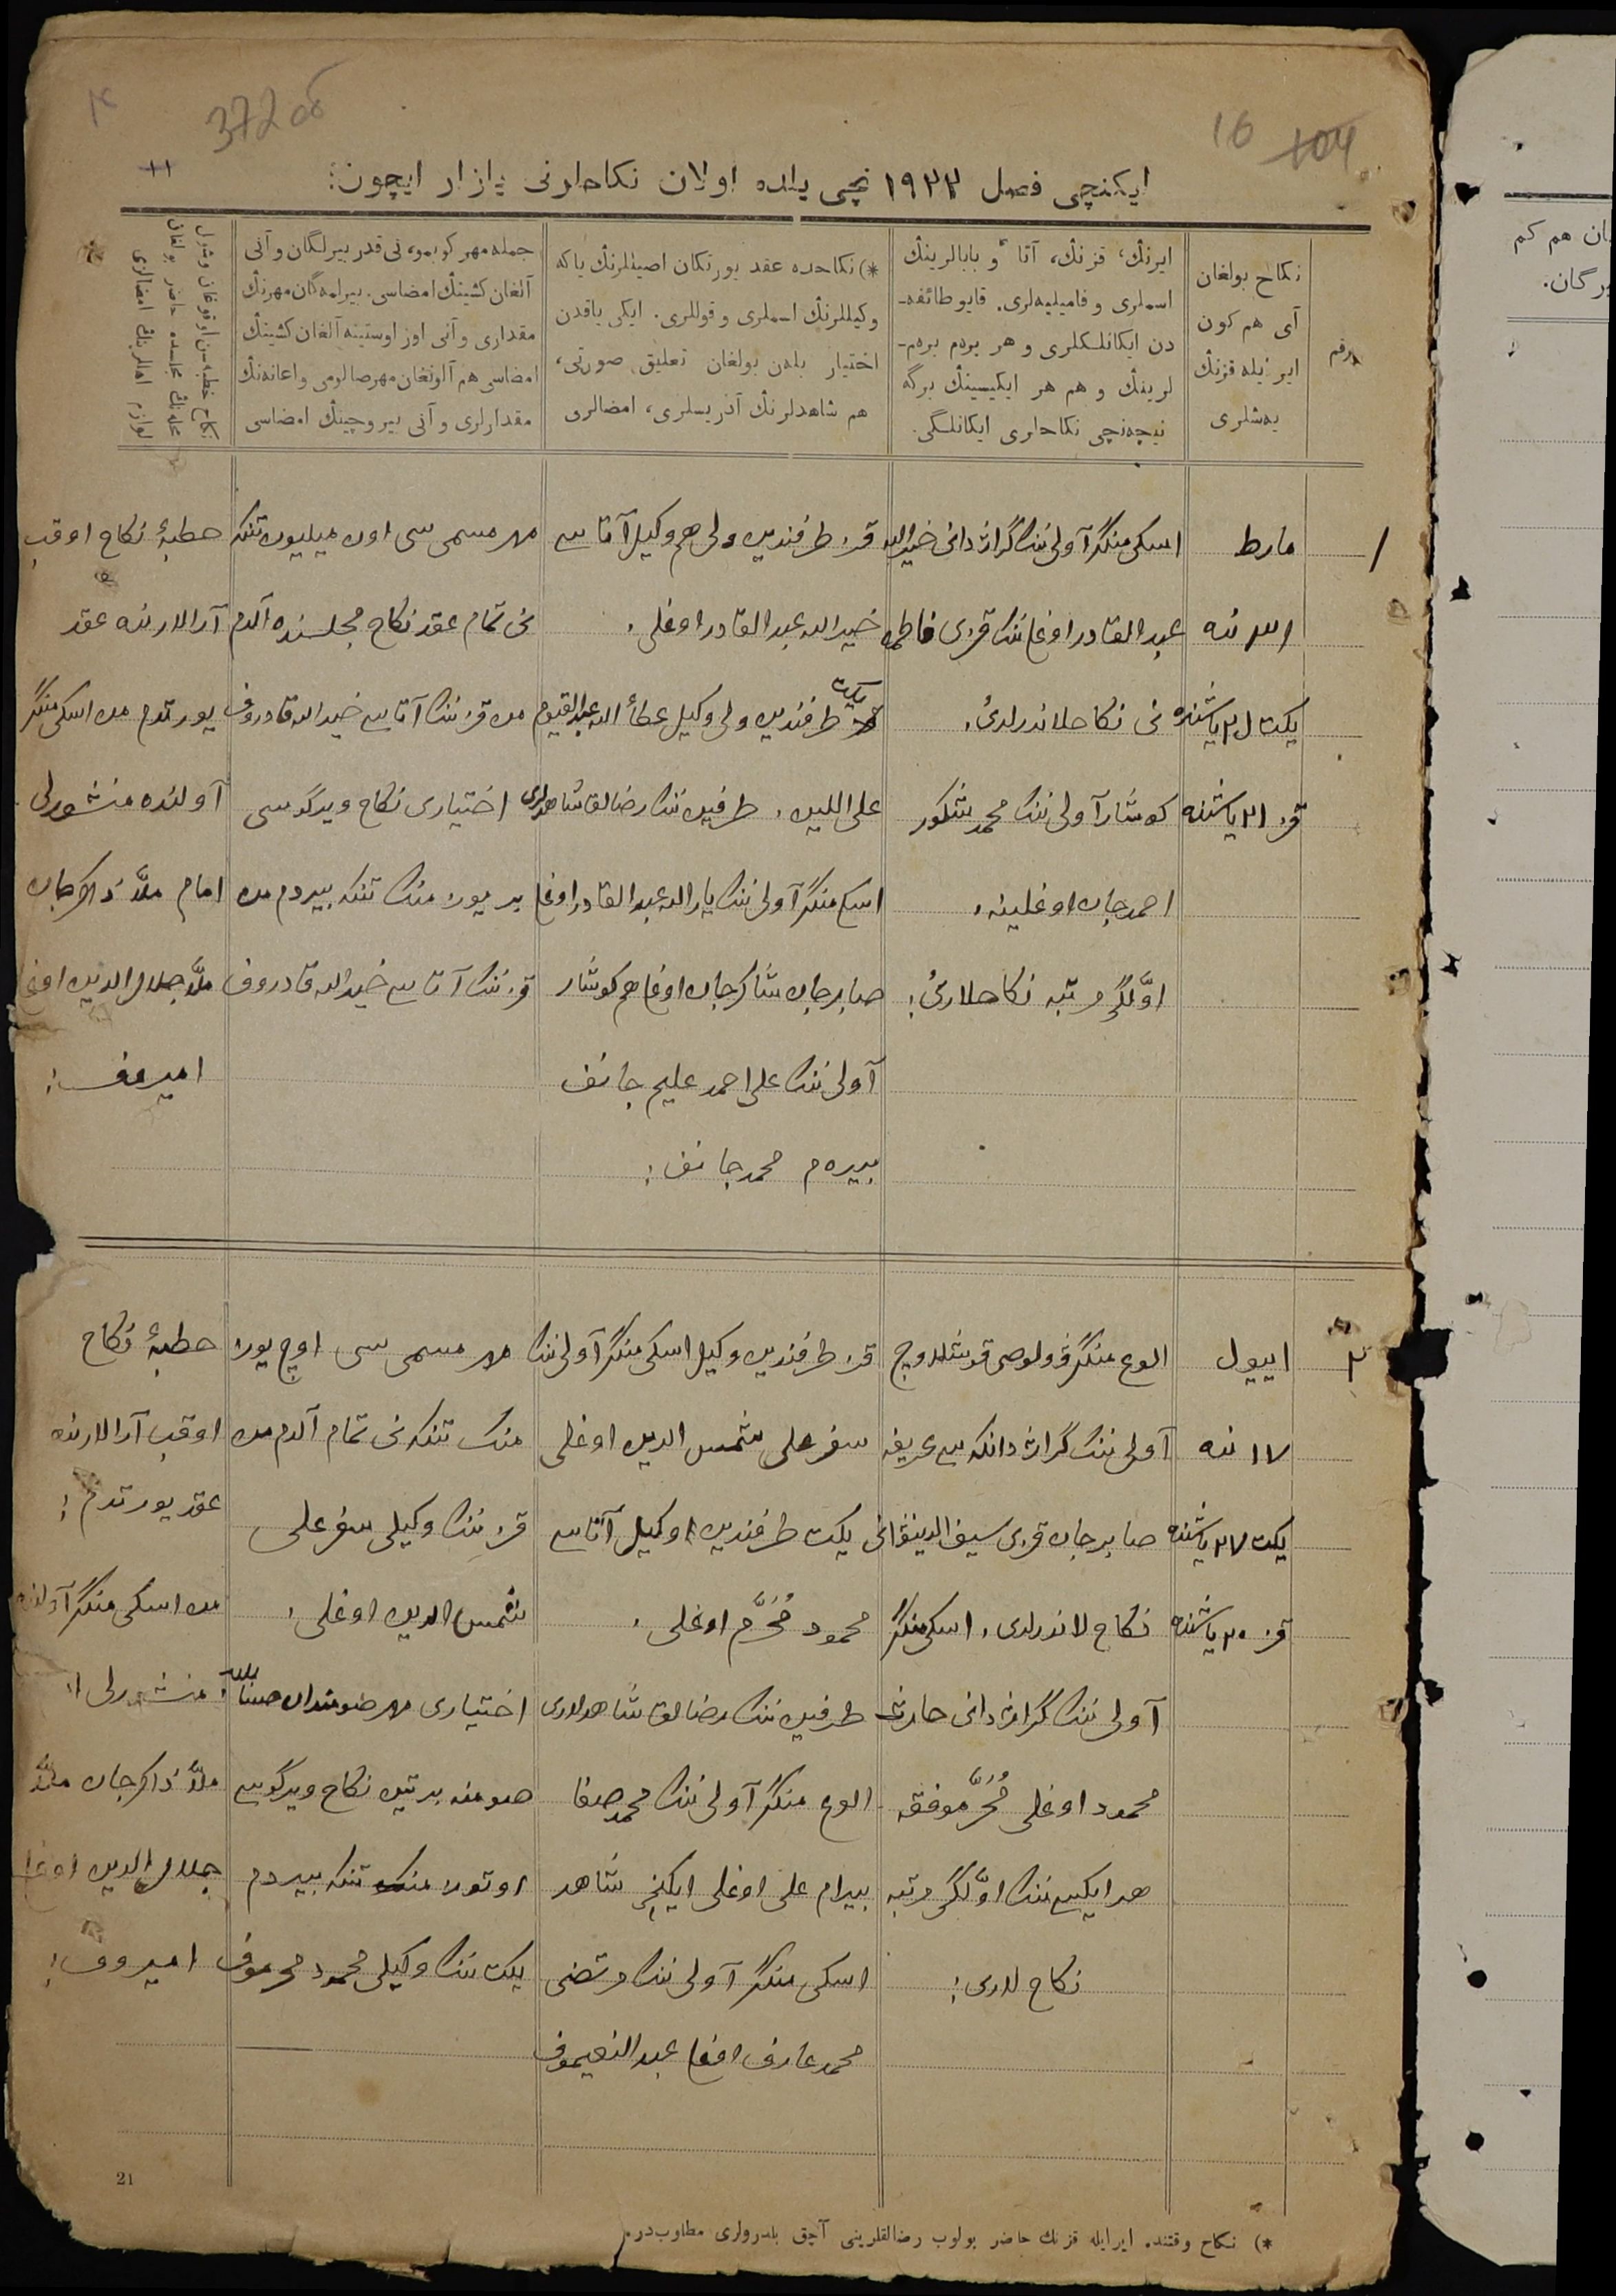 372 об
16 104
ایکنچی فصل ۱۹۲۳ نچی یلده اولان نکاحلرنی یازار ایچون:
رقم
نکاح بولغان
آی هم کون
ایر ایله قزنڭ
یه‌شلری
ایرنڭ، قزنڭ، آتا و بابالرینڭ
اسملری و فامیلیه‌لری. قایو طائفه‌-
دن ایکانلکلری و هر بره‌م بره‌م-
لرینڭ و هم هر ایکیسینڭ برگه
نیچه‌نچی نکاحلری ایکانلگی.
*) نکاحده عقد یورتکان اصیللرنڭ یاکه
وکیللرنڭ اسملری و قوللری. ایکی یاقدن
اختیار بله‌ن بولغان تعلیق صورتی،
هم شاهدلرنڭ آدریسلری، امضالری
جمله مهر کوبمو، نی قدر بیرلگان و آنی
آلغان کشینڭ امضاسی. بیرلمه‌گان مهرنڭ
مقداری و آنی اوز اوستینه آلغان کشینڭ
امضاسی هم آلونغان مهر صالومی و اعانه‌نڭ
مقدارلری و آنی بیروچینڭ امضاسی
۱
مارط
یکت ۲۰ یاشنده
قز ۲۱ یاشنده
اسکی منگر آولی ننک گراژدانی خیرالله
عبدالقادر اوغلی ننک قزی فاطمه
نی نکاحلاندرلدی.
کوشار آولی ننک محمد شکور
احمدجان اوغلینه.
اوّلگی مرتبه نکاحلاری؛
قز طرفندین ولی هم وکیل آتاسی
خیرالله عبدالقادر اوغلی.
یکت طرفندین ولی وکیل عطأ الله عبدالقیوم
طرفین ننک رضالق شاهدلری
اسکی منگر آولی ننک یارالله عبدالقادر اوغلی
صابرجان شاکرجان اوغلی هم کوشار
آولی ننک علی احمد علیم جانف
بیرم محمدجانف؛
مهر مسمی سی اون میلیون تنکه
نی تمام عقد نکاح مجلسنده آلدم
من قز ننک آتاسی خیرالله قادروف
اختیاری نکاح ویرگوسی
بر یوز منک تنکه بیردم من
قز ننک آتاسی خیرالله قادروف
خطبهٔ نکاح اوقب
آرالارنده عقد
یورتدم من اسکی منگر
آولنده منشورلی
امام ملّا ذاکرجان
ملّا جلال الدین اوغلی
امیروف؛
۲
اییول
۱۷ نده
یکت ۲۷ یاشنده
قز ۲۰ یاشنده
آولی ننک گراژدانکه سی شریفه
صابرجان قزی سیف الدینفانی
نکاح لاندرلدی. اسکی منگر
آولی ننک گراژدانی حارث
محمود اوغلی مُحَرَّموفقه
هر ایکیسی ننک اوّلگی مرتبه
نکاح لاری؛
قز طرفندین وکیل اسکی منگر آولی ننک
سفر علی شمس الدین اوغلی
یکت طرفندین وکیل آتاسی
محمود مُحَرَّم اوغلی.
طرفین ننک رضالق شاهدلاری
الوغ منگر آولی ننک محمد صفا
بیرام علی اوغلی ایکنجی شاهد
اسکی منگر آولی ننک مرتضی
محمد عارف اوغلی عبدالنعیموف
مهر مسمی سی اوچ یوز
منک تنکه نی تمام آلدم من
قز ننک وکیلی سفر علی
شمس الدین اوغلی.
نکاح ویرگوسی
اوتوز منک تنکه بیردم
یکت ننک وکیلی محمود محرموف
خطبهٔ نکاح
اوقب آرالارنده
عقد یورتدم؛
من اسکی منگر آولنده
منشورلی
ملّا ذاکرجان ملّا
جلال الدین اوغلی
امیروف؛
21
*) نکاح وقتنده ایر ایله قزنڭ حاضر بولوب رضالقلرینی آچق بلدرولری مطلوب‌در.
ان هم کم
یرگان.